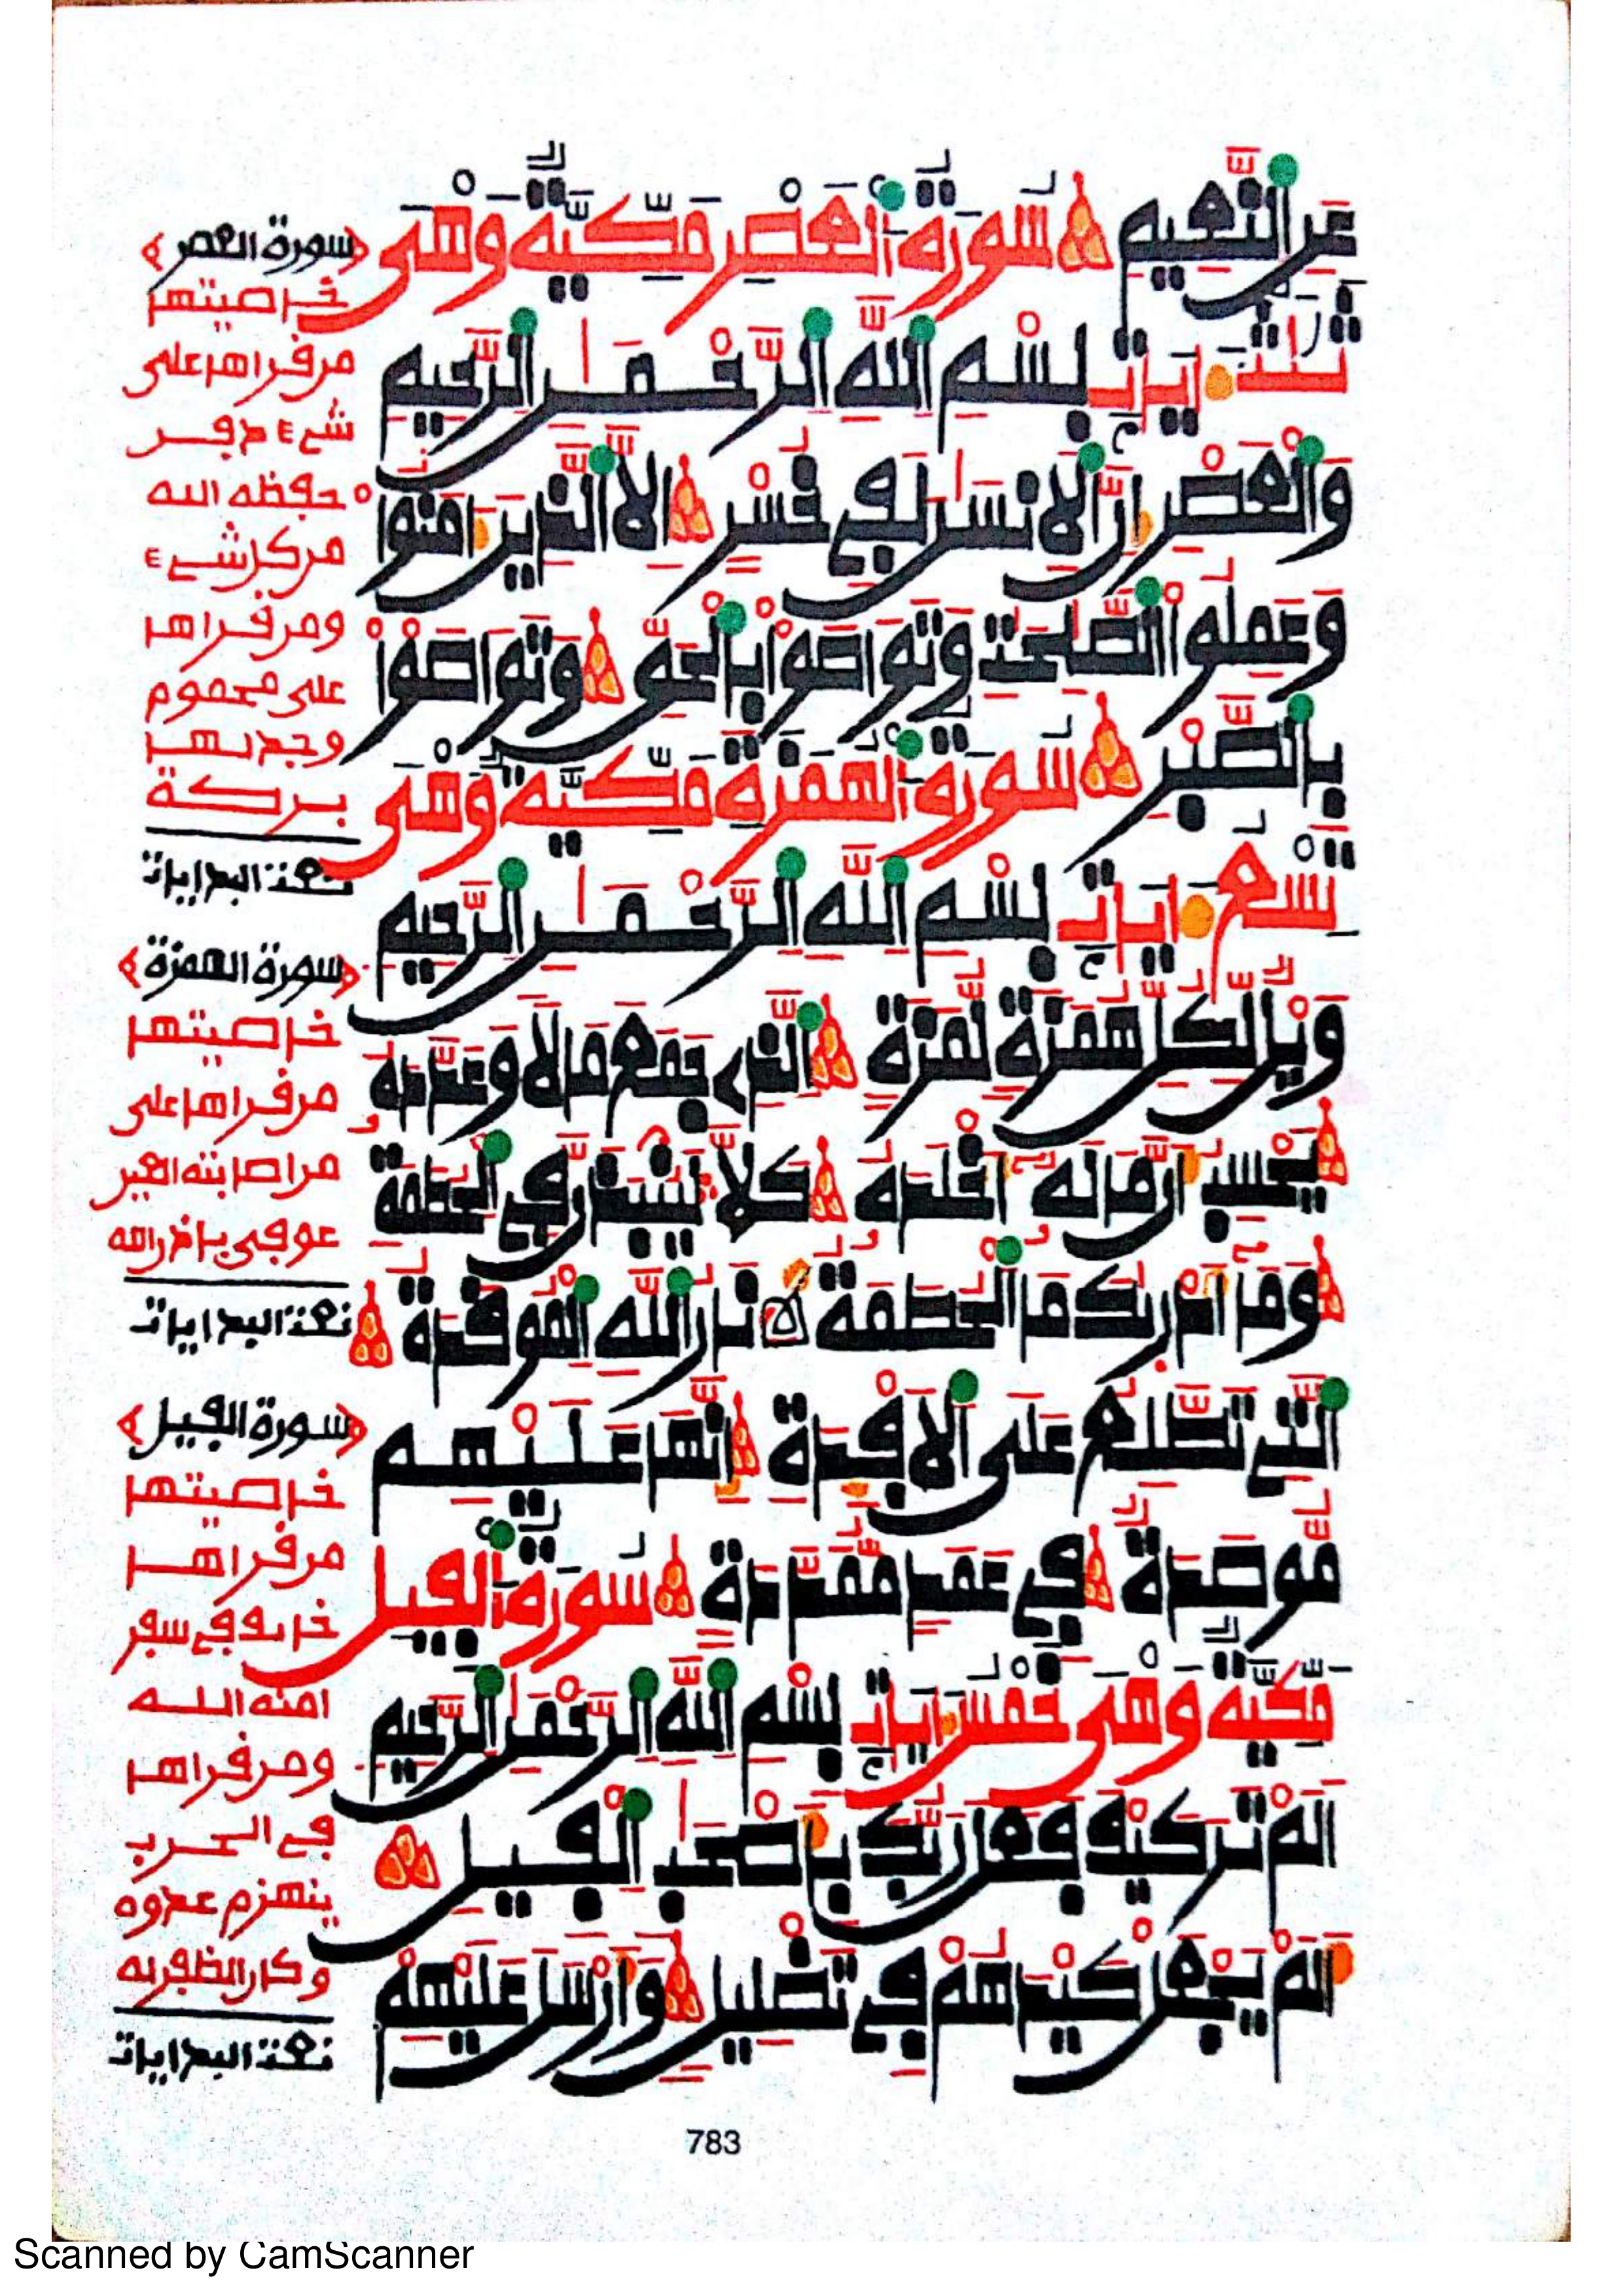 عَنِ ٱلنَّعِيمِ سُورَةُ ٱلْعَصْرِ مَكِّيَّةٌ وَهْىَ
ثَلَٰثُ ءَايَٰتٍ بِسْمِ ٱللَّهِ ٱلرَّحْمَٰنِ ٱلرَّحِيمِ
وَٱلْعَصْرِ إِنَّ ٱلِانسَٰنَ لَفِى خُسْرٍ إِلَّا ٱلَّذِينَ ءَامَنُواْ
وَعَمِلُواْ ٱلصَّٰلِحَٰتِ وَتَوَاصَوْاْ بِٱلْحَقِّ وَتَوَاصَوْاْ
بِٱلصَّبْرِ سُورَةُ ٱلْهُمَزَةِ مَكِّيَّةٌ وَهْىَ
تِسْعُ ءَايَٰتٍ بِسْمِ ٱللَّهِ ٱلرَّحْمَٰنِ ٱلرَّحِيمِ
وَيْلٌ لِّكُلِّ هُمَزَةٍ لُّمَزَةٍ ٱلَّذِى جَمَعَ مَالًا وَعَدَّدَهُۥ
يَحْسِبُ أَنَّ مَالَهُۥٓ أَخْلَدَهُۥ كَلَّا لَيُنۢبَذَنَّ فِى ٱلْحُطَمَةِ
وَمَآ أَدْرَىٰكَ مَا ٱلْحُطَمَةُ نَارُ ٱللَّهِ ٱلْمُوقَدَةُ
ٱلَّتِى تَطَّلِعُ عَلَى ٱلَافْـِٔدَةِ إِنَّهَا عَلَيْهِم
مُّوصَدَةٌ فِى عَمَدٍ مُّمَدَّدَةٍ سُورَةُ ٱلْفِيلِ
مَكِّيَّةٌ وَهْىَ خَمْسُ ءَايَٰتٍ بِسْمِ ٱللَّهِ ٱلرَّحْمَٰنِ ٱلرَّحِيمِ
أَلَمْ تَرَ كَيْفَ فَعَلَ رَبُّكَ بِأَصْحَٰبِ ٱلْفِيلِ
أَلَمْ يَجْعَلْ كَيْدَهُمْ فِى تَضْلِيلٍ وَأَرْسَلَ عَلَيْهِمْ
سورة العصر
خاصيتها
من قرأها على
شىء دفن
حفظه الله
من كل شىء
ومن قرأها
على محموم
وجد لها
بركة
تمت البدايات
سورة الهمزة
خاصيتها
من قرأها على
من اصابته العين
عوفى باذن الله
تمت البدايات
سورة الفيل
خاصيتها
من قرأها
خائف فى سفر
امنه الله
ومن قرأها
فى الحرب
ينهزم عدوه
وكان الظفر له
تمت البدايات
783
Scanned by CamScanner